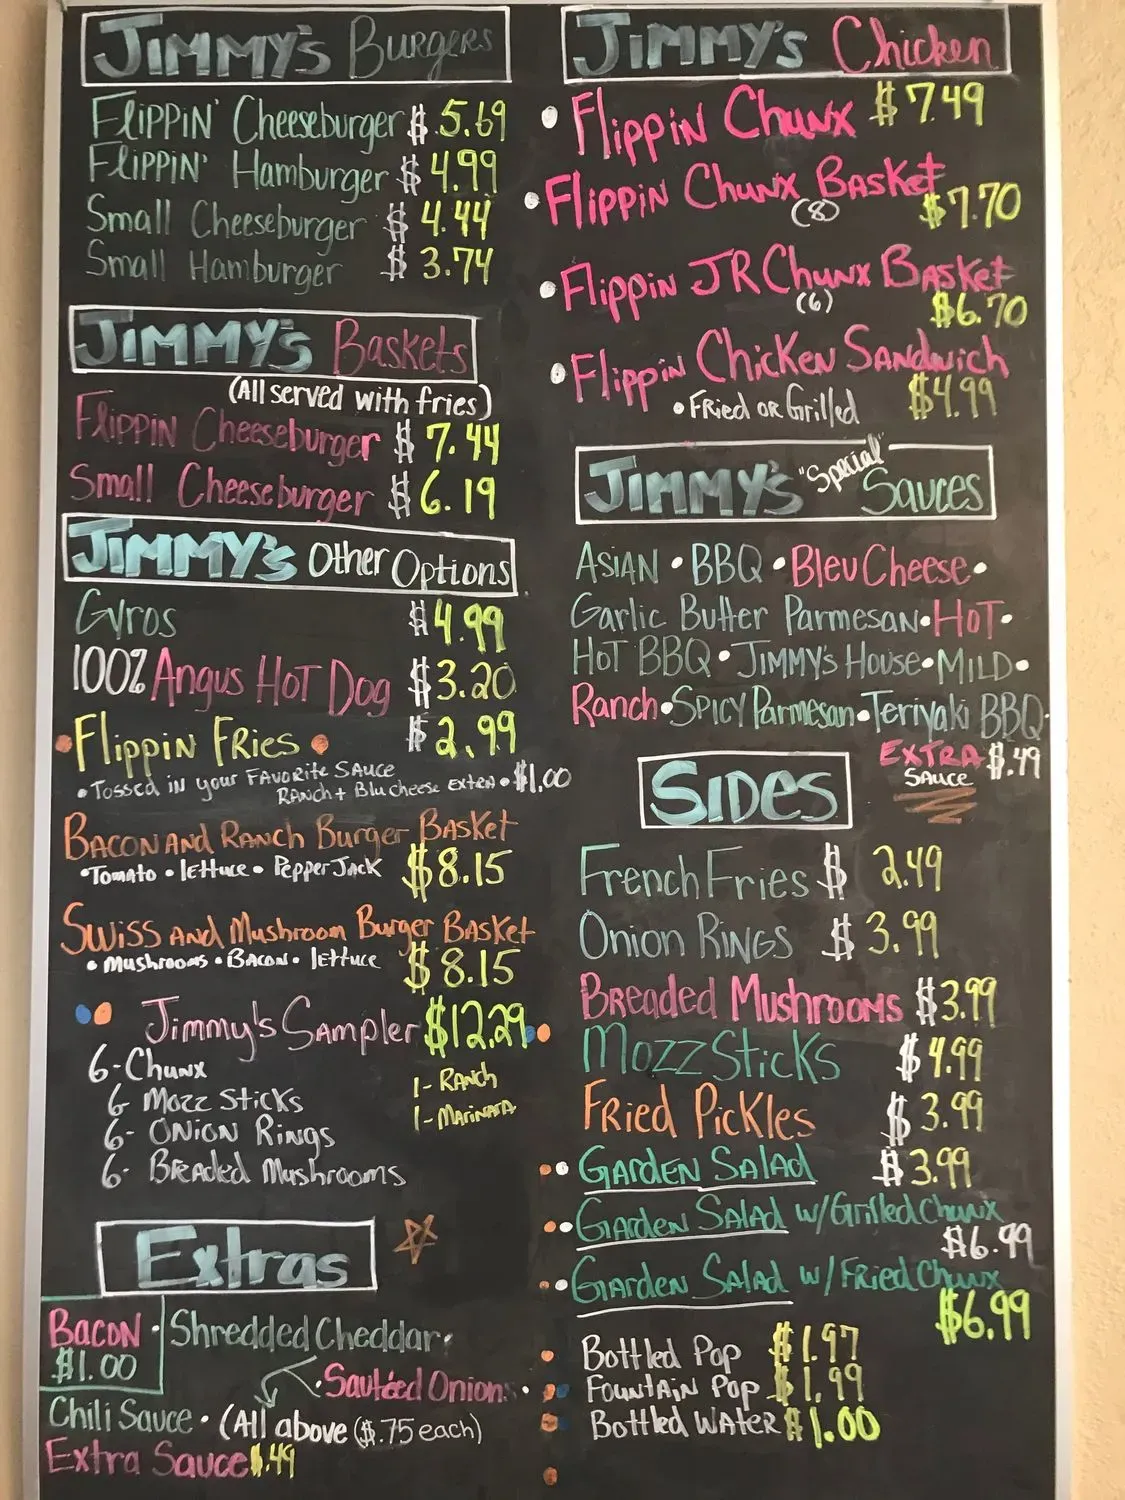 JIMMY'S Burgers
FLIPPIN' Cheeseburger $ 5.69
FLIPPIN' Hamburger $ 4.99
Small Cheeseburger $ 4.44
Small Hamburger $ 3.74
JIMMY'S Baskets
(All served with fries)
FLIPPIN Cheeseburger $ 7.44
Small Cheeseburger $ 6.19
JIMMY'S Other Options
Gyros $4.99
100% Angus Hot Dog $3.20
• Flippin Fries • $2.99
• Tossed in your favorite sauce
Ranch + Blu cheese extra • $1.00
Bacon and Ranch Burger Basket
• Tomato • lettuce • Pepper Jack $8.15
Swiss and Mushroom Burger Basket
• Mushrooms • Bacon • lettuce $8.15
Jimmy's Sampler $12.29
6- Chunx
6 Mozz Sticks
6- Onion Rings
6- Breaded Mushrooms
1- Ranch
1- Marinara
Extras
Bacon • Shredded Cheddar •
$1.00
• Sautéed Onions •
Chili Sauce • (All above ($.75 each)
Extra Sauce $.49
JIMMY'S Chicken
• Flippin Chunx $7.49
• Flippin Chunx Basket
(8) $7.70
• Flippin JR Chunx Basket
(6) $6.70
• Flippin Chicken Sandwich
• Fried or Grilled $4.99
JIMMY'S "Special" Sauces
Asian • BBQ • Bleu Cheese •
Garlic Butter Parmesan • Hot •
Hot BBQ • Jimmy's House • Mild •
Ranch • Spicy Parmesan • Teriyaki BBQ •
Extra Sauce $.49
SIDES
French Fries $ 2.49
Onion Rings $ 3.99
Breaded Mushrooms $3.99
Mozz Sticks $ 4.99
Fried Pickles $ 3.99
• Garden Salad $3.99
• Garden Salad w/ Grilled Chunx
$6.99
• Garden Salad w/ Fried Chunx
$6.99
Bottled Pop $1.97
Fountain Pop $1.99
Bottled Water $1.00